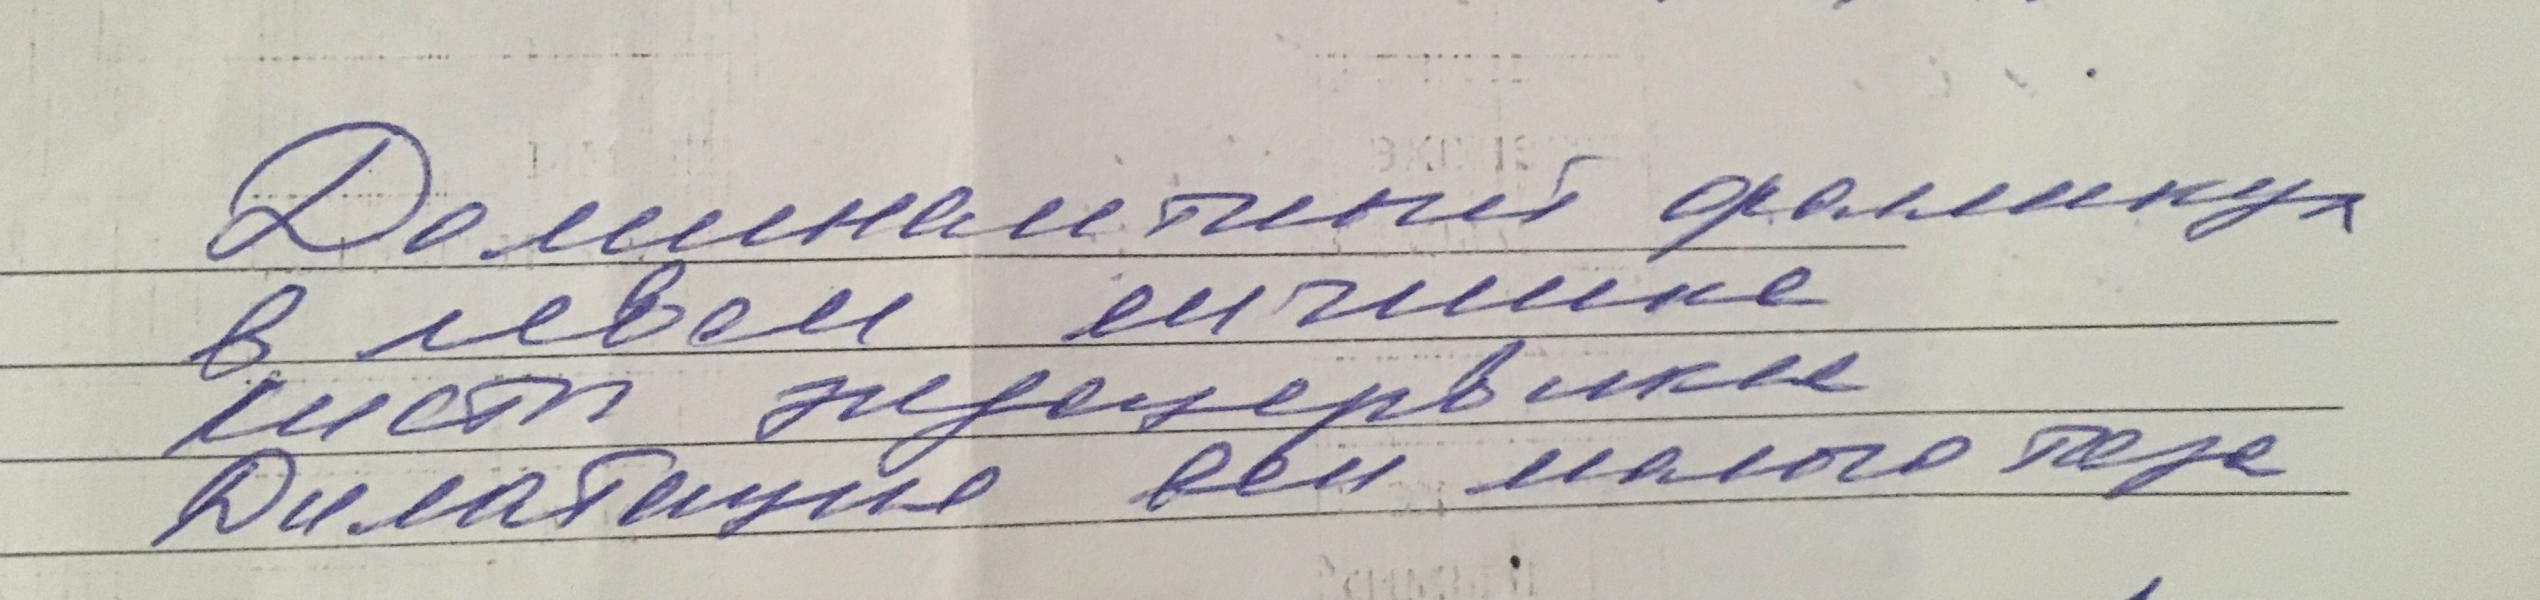 Доминантный фолликул
в левом яичнике
Кисты эндоцервикса
Дилатация вен малого таза